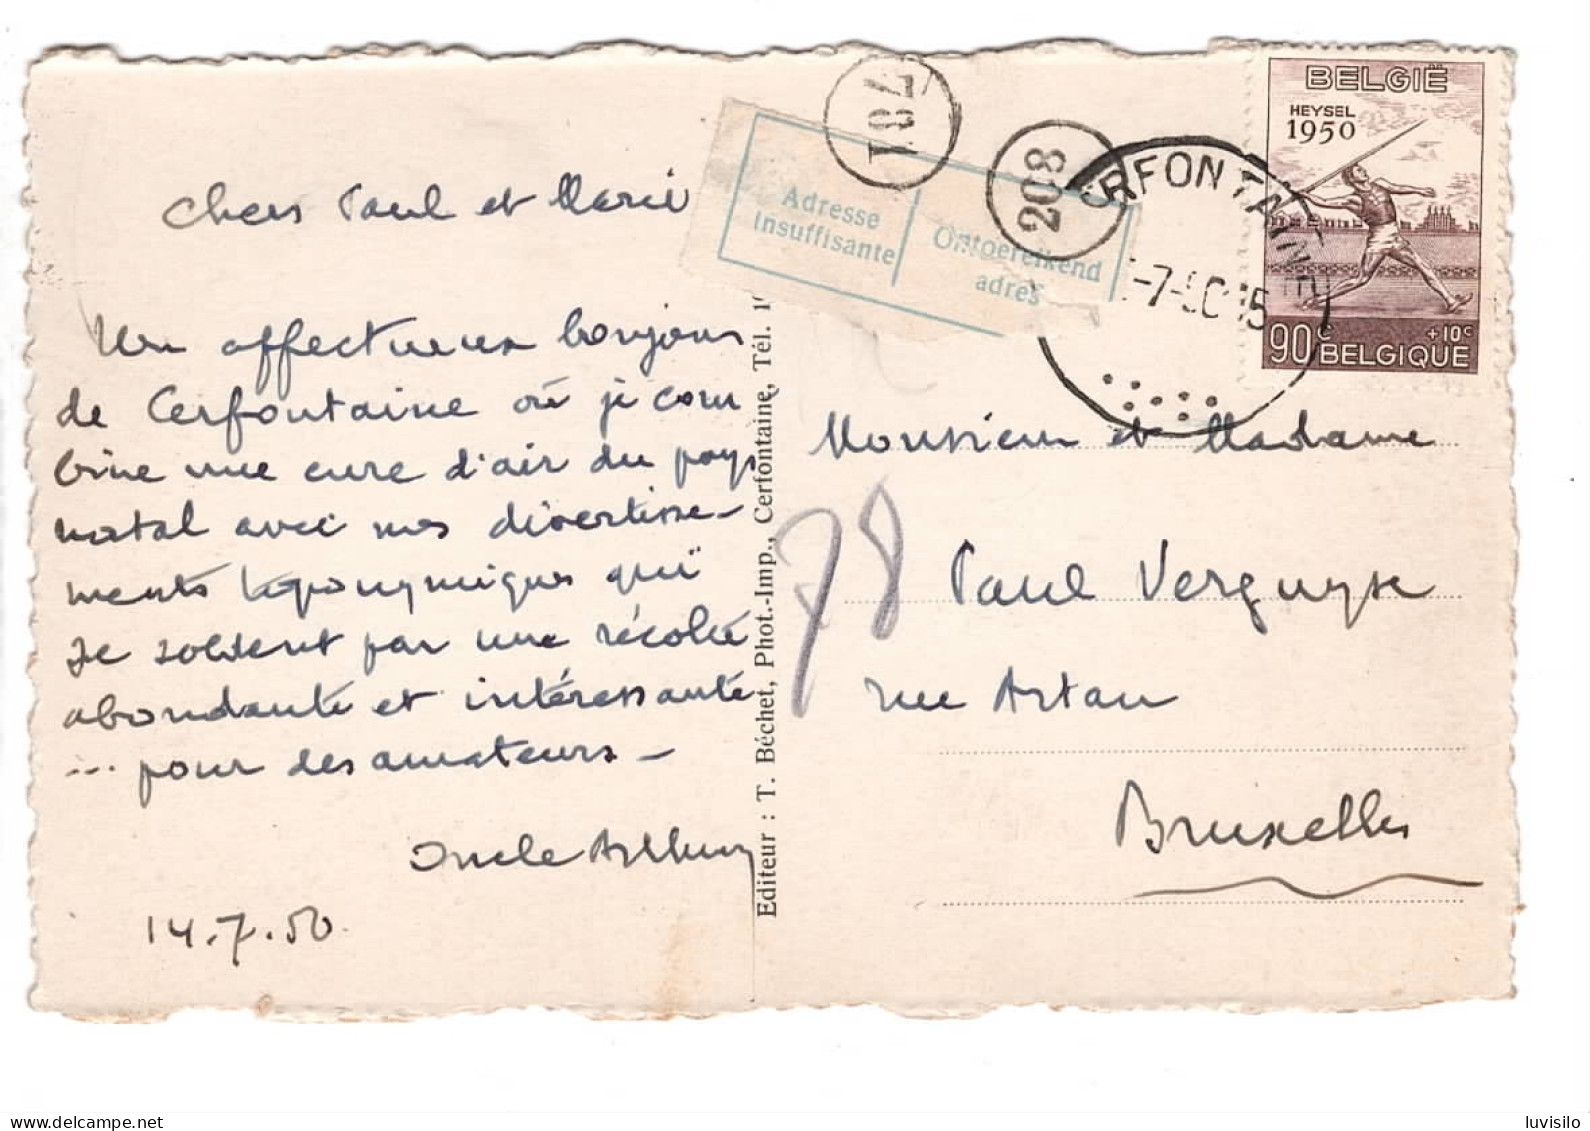 Chers Paul et Marie
Un affectueux bonjour
de Cerfontaine où je com
bine une cure d'air du pays
natal avec mes divertisse-
ments toponymiques qui
se soldent par une récolte
abondante et intéressante
... pour des amateurs -
Oncle Arthur
14.7.50
Editeur : T. Béchet, Phot.-Imp., Cerfontaine, Tél. 1
Adresse
insuffisante
Ontoereikend
adres
781
208
ERFONTAINE
-7-50 15
BELGIË
HEYSEL
1950
90c +10c
BELGIQUE
Monsieur et Madame
78
Paul Verguyse
rue Artan
Bruxelles
www.delcampe.net
luvisilo